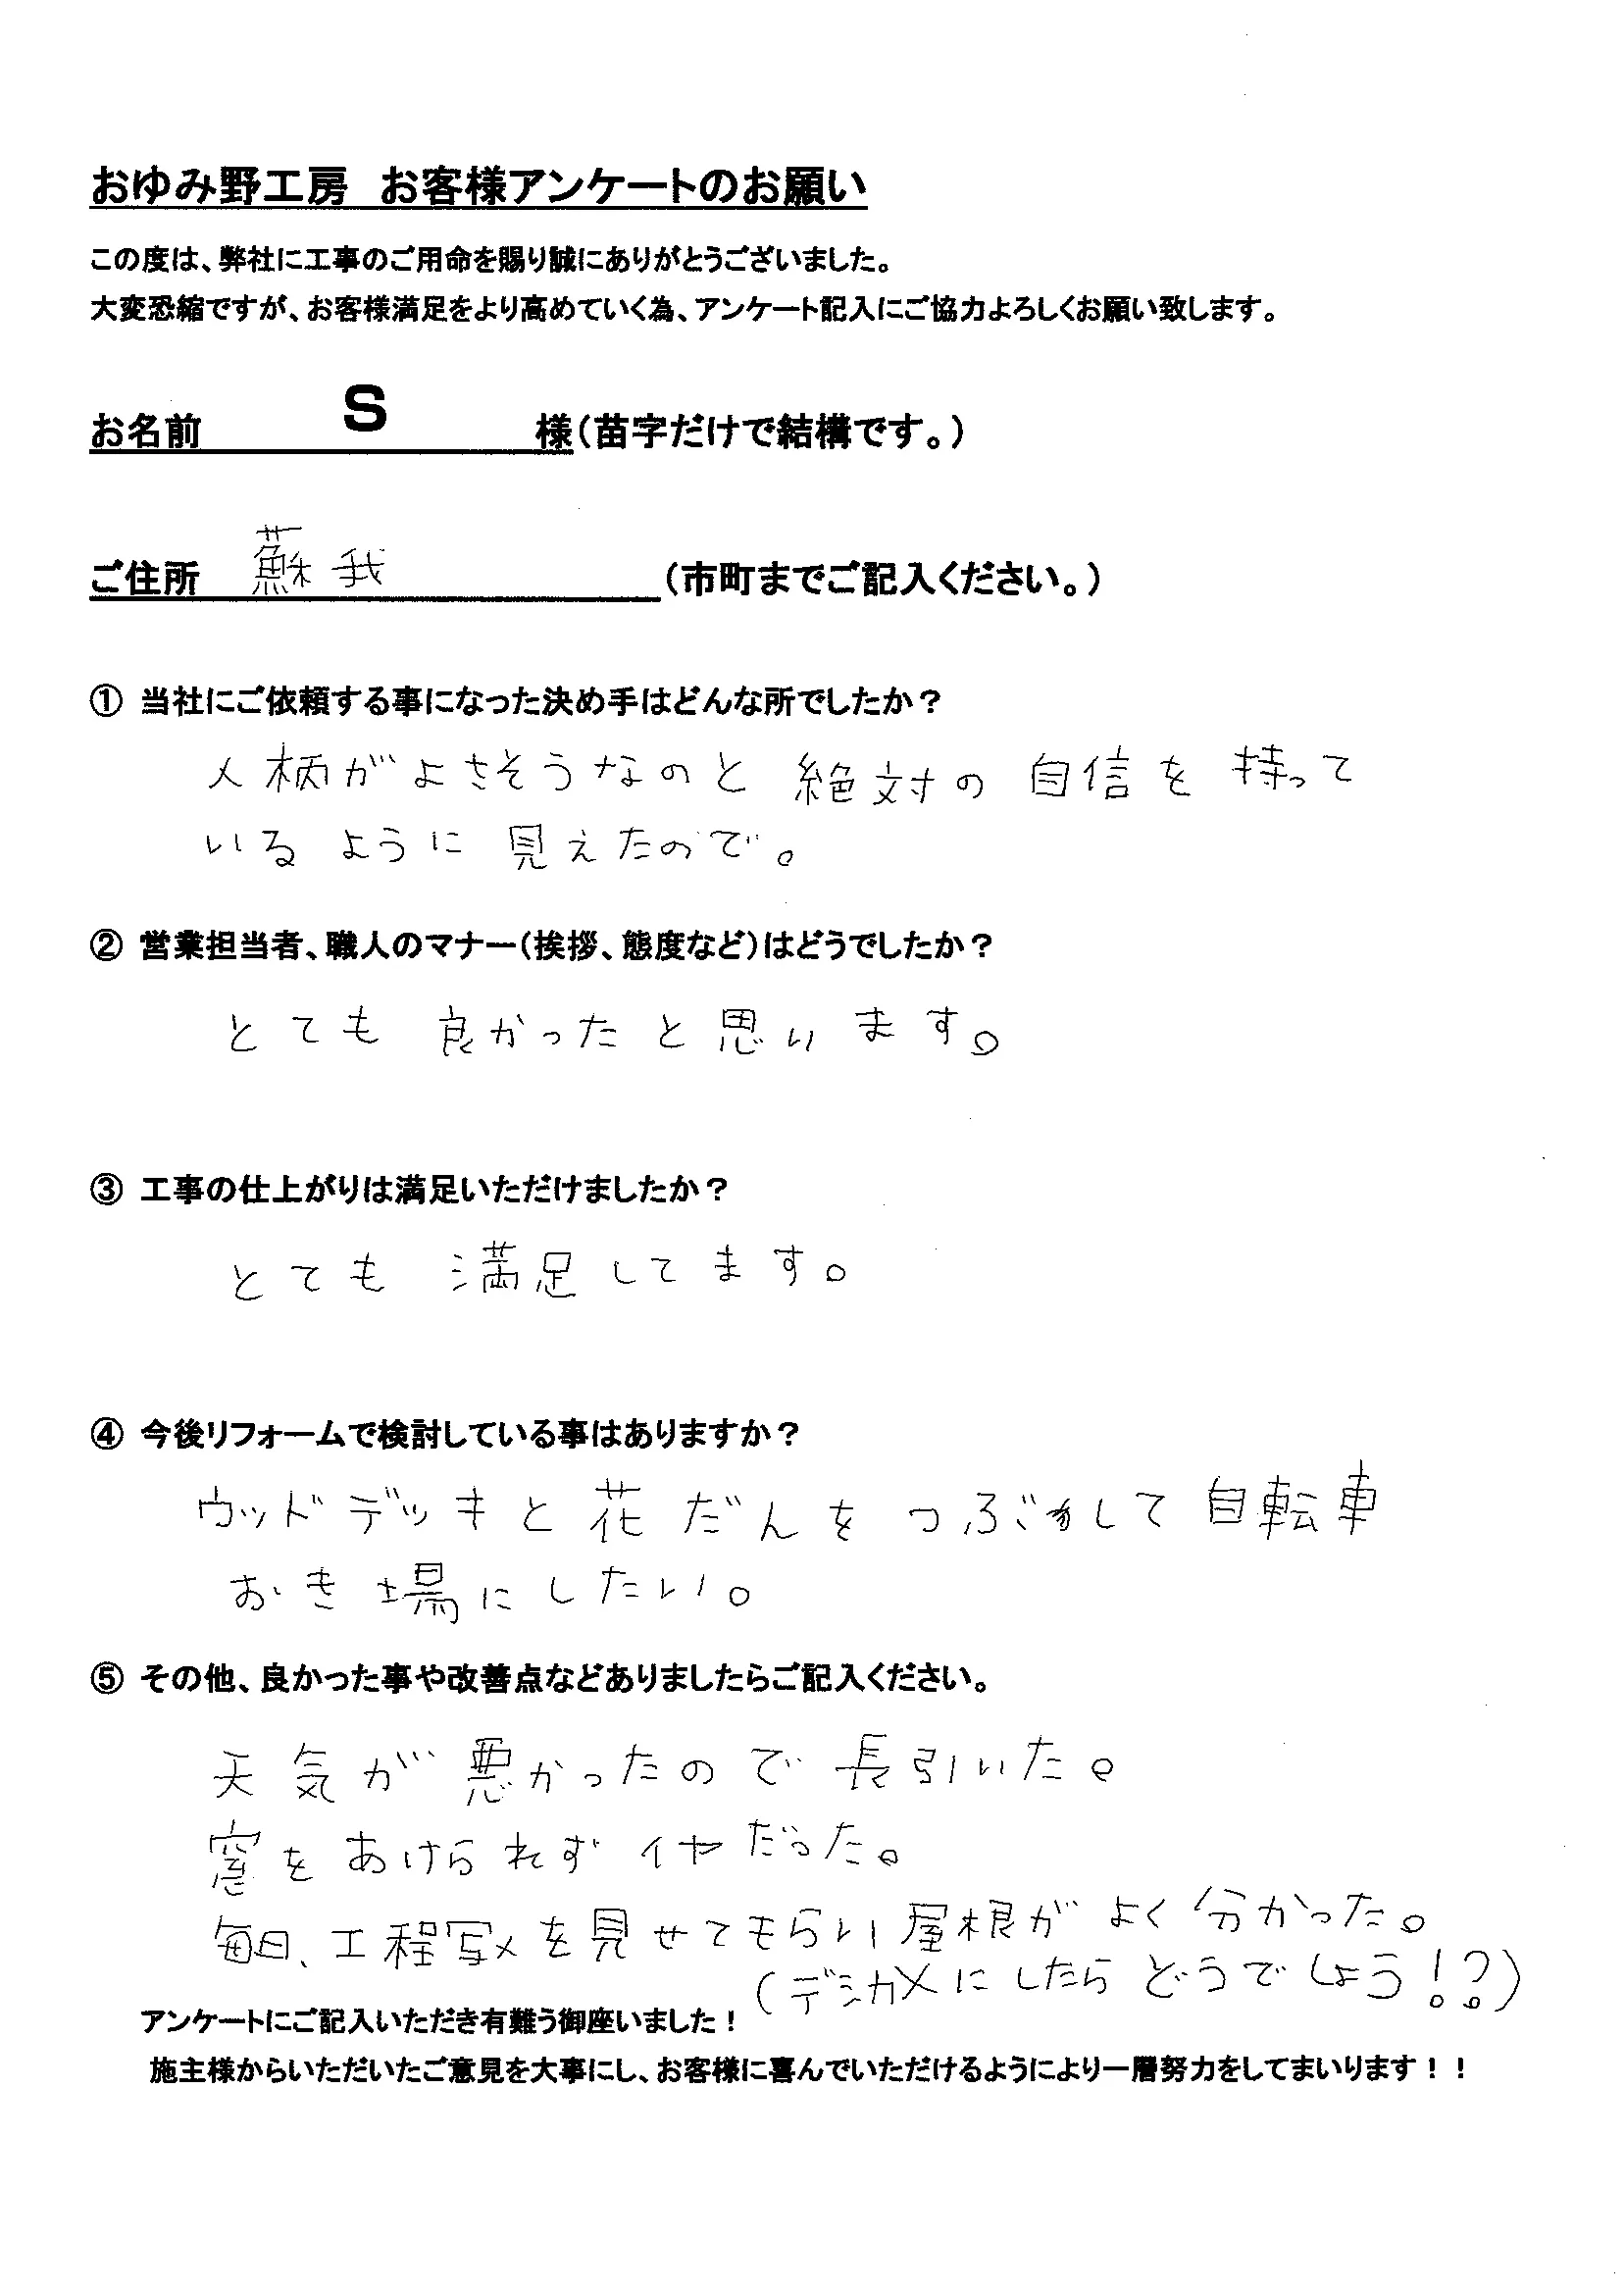 おゆみ野工房　お客様アンケートのお願い
この度は、弊社に工事のご用命を賜り誠にありがとうございました。
大変恐縮ですが、お客様満足をより高めていく為、アンケート記入にご協力よろしくお願い致します。
お名前　S　様（苗字だけで結構です。）
ご住所　蘇我　（市町までご記入ください。）
① 当社にご依頼する事になった決め手はどんな所でしたか？
人柄がよさそうなのと 絶対の 自信を 持って
いる ように 見えたので。
② 営業担当者、職人のマナー（挨拶、態度など）はどうでしたか？
とても 良かったと思います。
③ 工事の仕上がりは満足いただけましたか？
とても 満足してます。
④ 今後リフォームで検討している事はありますか？
ウッドデッキと花だんを つぶして自転車
おき場にしたい。
⑤ その他、良かった事や改善点などありましたらご記入ください。
天気が悪かったので長引いた。
窓をあけられずイヤだった。
毎日、工程写メを見せてもらい屋根がよく分かった。
（デジカメにしたらどうでしょう！？）
アンケートにご記入いただき有難う御座いました！
施主様からいただいたご意見を大事にし、お客様に喜んでいただけるようにより一層努力をしてまいります！！